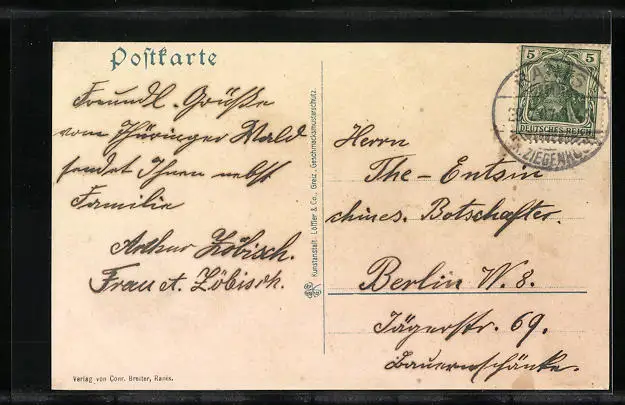 Postkarte
Freundl. Grüße
vom Thüringer Wald
sendet Ihnen nebst
Familie
Arthur Zöbisch.
Frau A. Zöbisch.
Verlag von Conr. Breiter, Ranis.
Kunstanstalt Löffler & Co., Greiz, Geschmacksmusterschutz.
5 5
DEUTSCHES REICH
RANIS
ZIEGENR
Herrn
The-Entsin
chines. Botschafter.
Berlin W. 8.
Jägerstr. 69.
Bauernschänke.